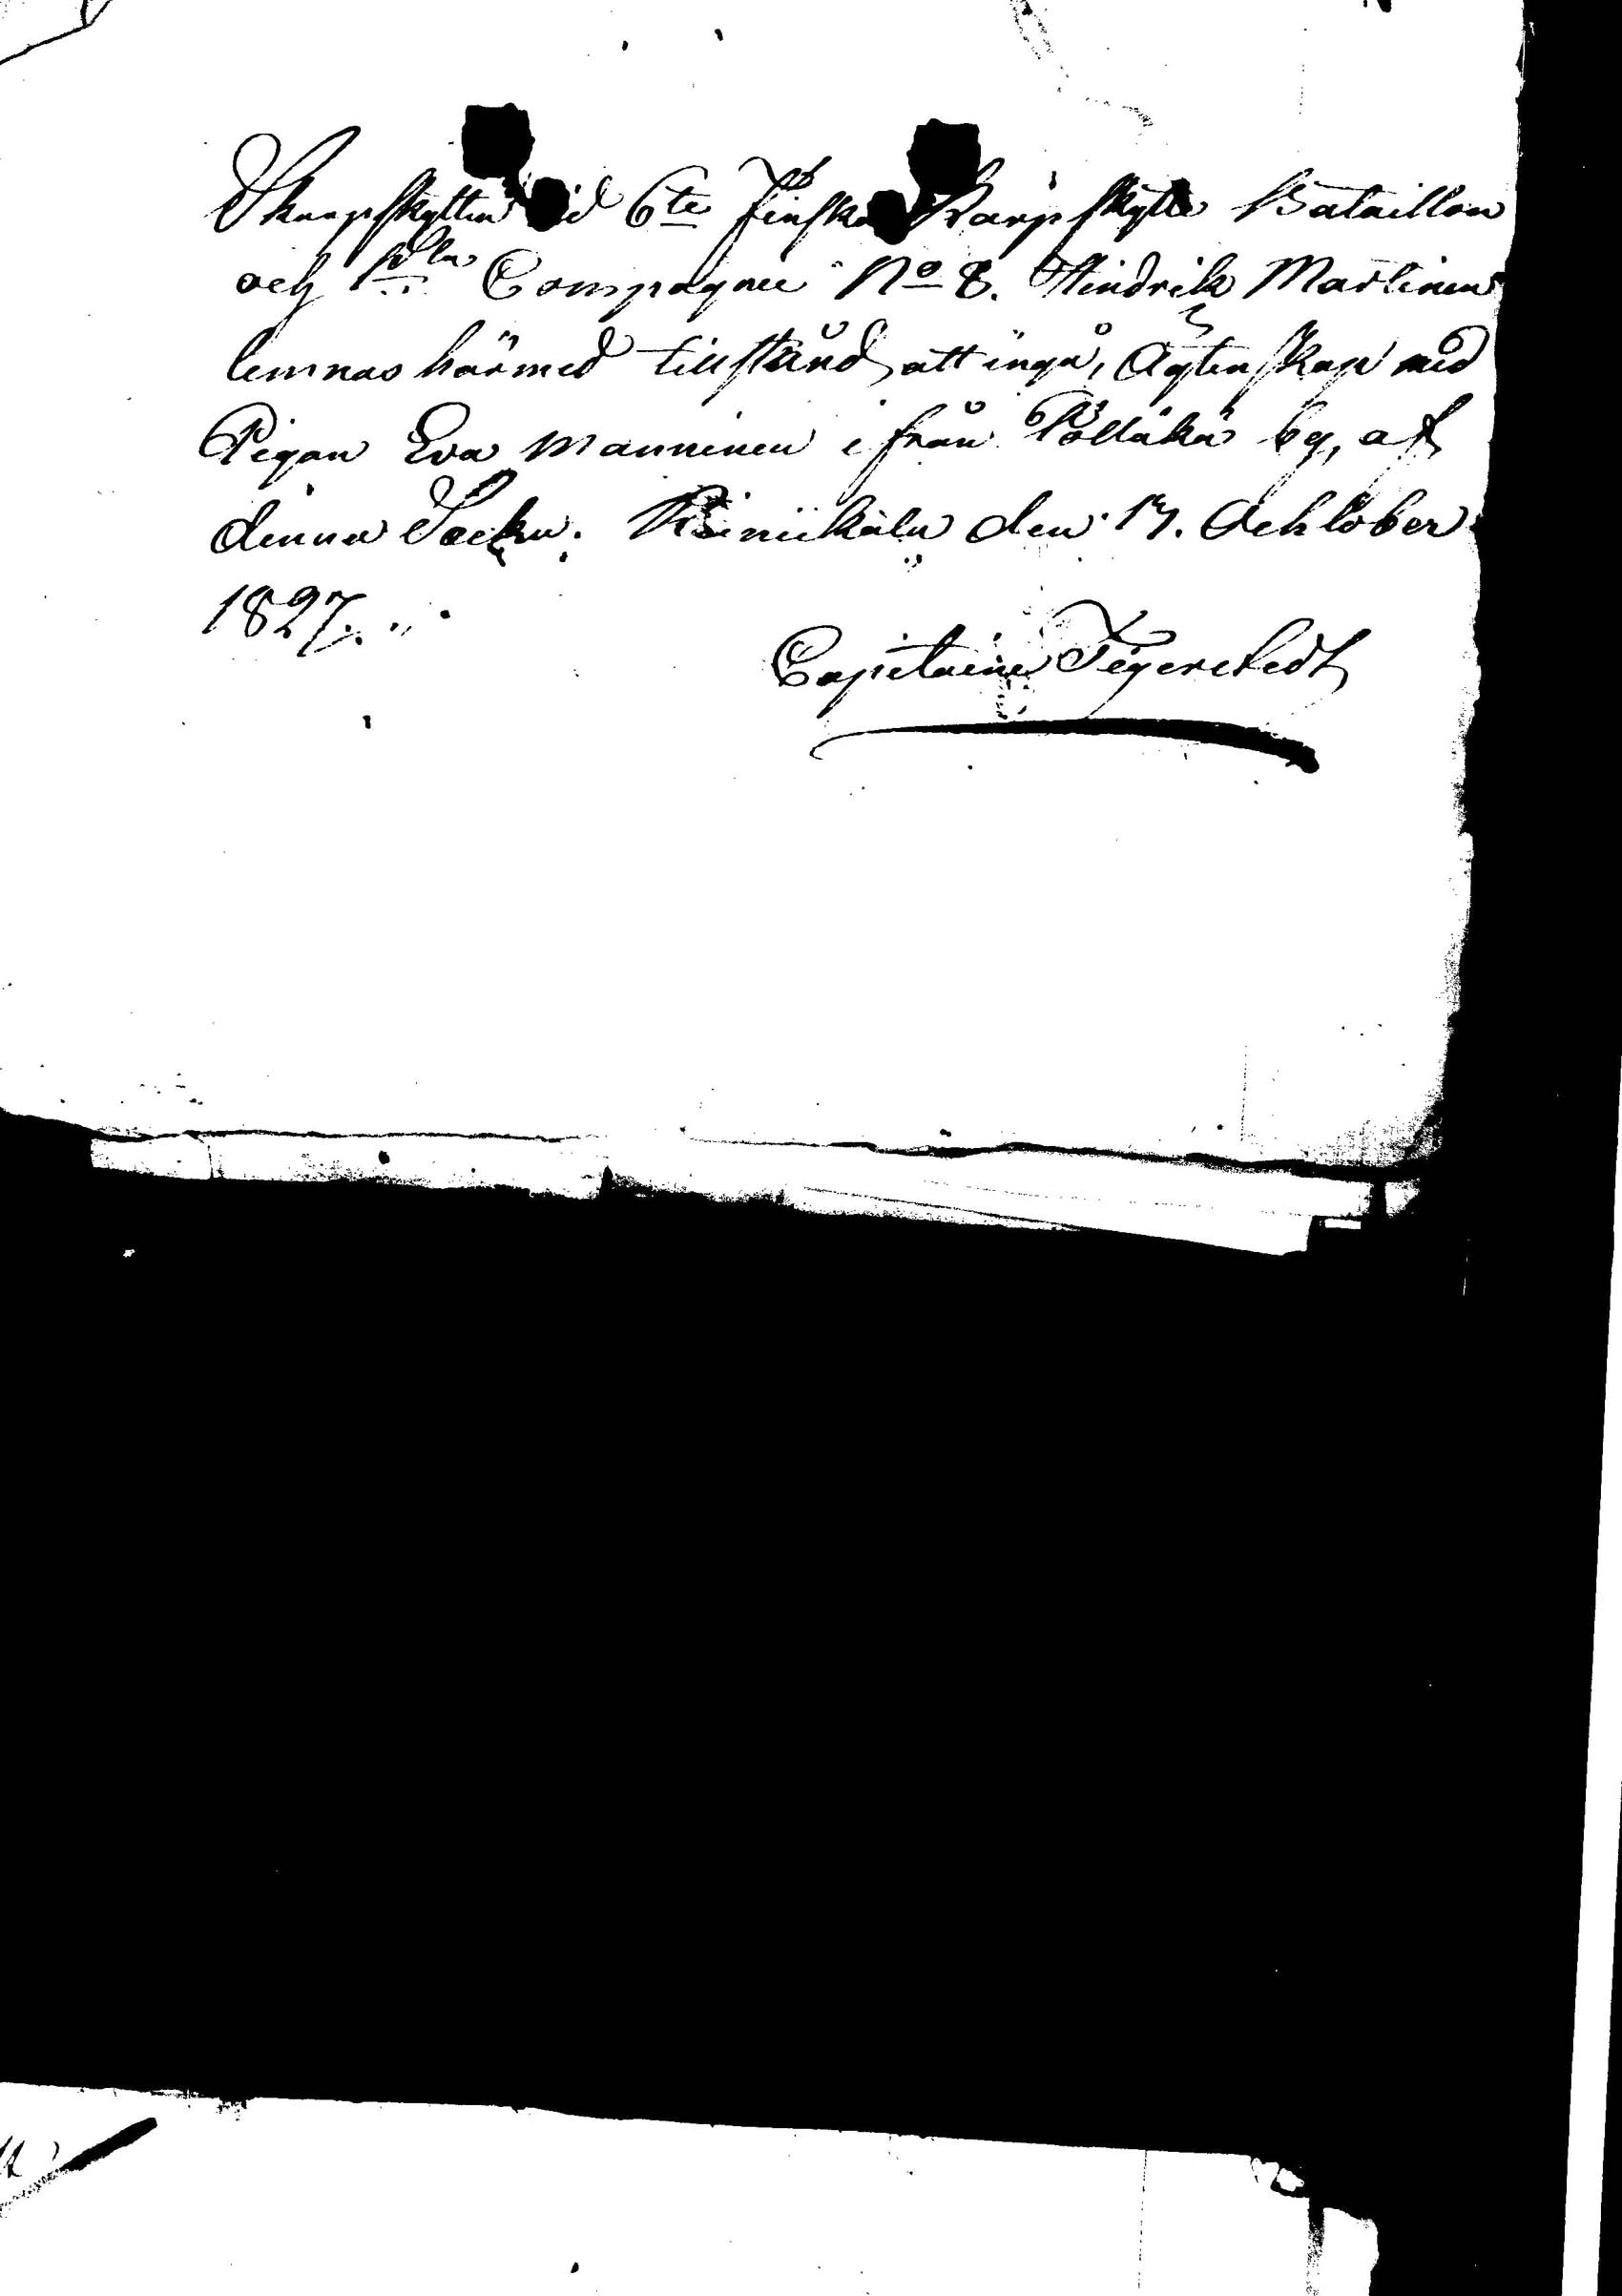 Skarpskytten vid 6te Finska Skarpskytte Bataillon
och Compagnie No 8. Hindrik Martinen
lemnas härmed tillstånd att ingå, Ägtenskap med
Pigan Eva Manninen ifrån Pöllákä by, af
denna Sockn. den 17. Ochtober
1827.
Capitaine Tegerstedt